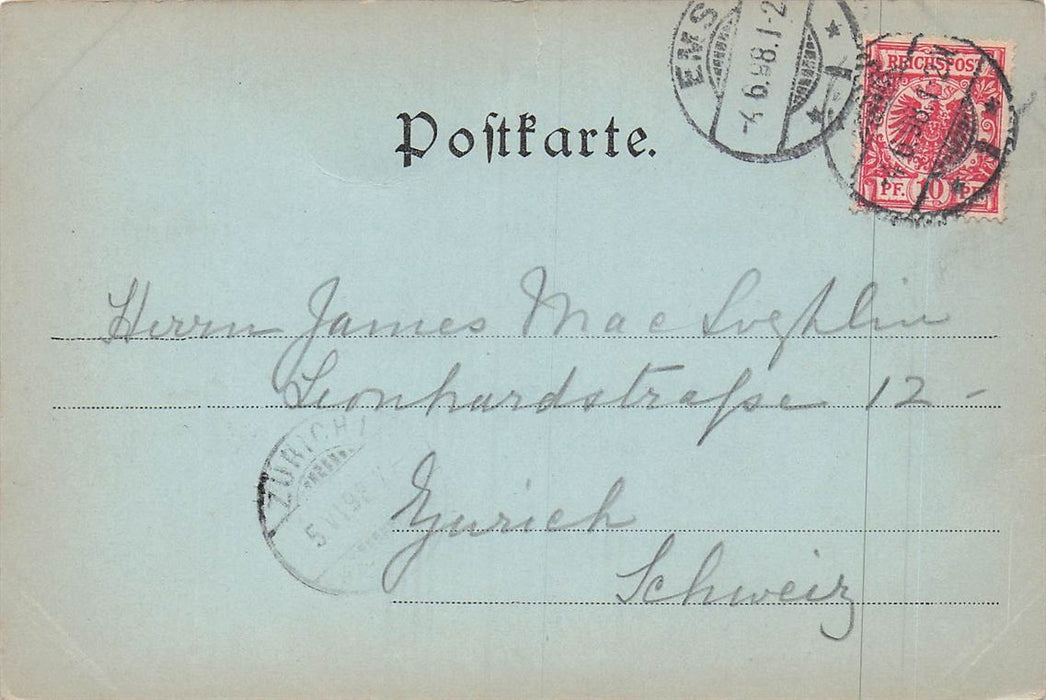 EMS
4.6.98.1-2
REICHSPOST
PF. 10 PF.
Postkarte.
Herrn James Mac Loghlin
Leonhardstraße 12-
ZÜRICH
5.VI.98
Zürich
Schweiz